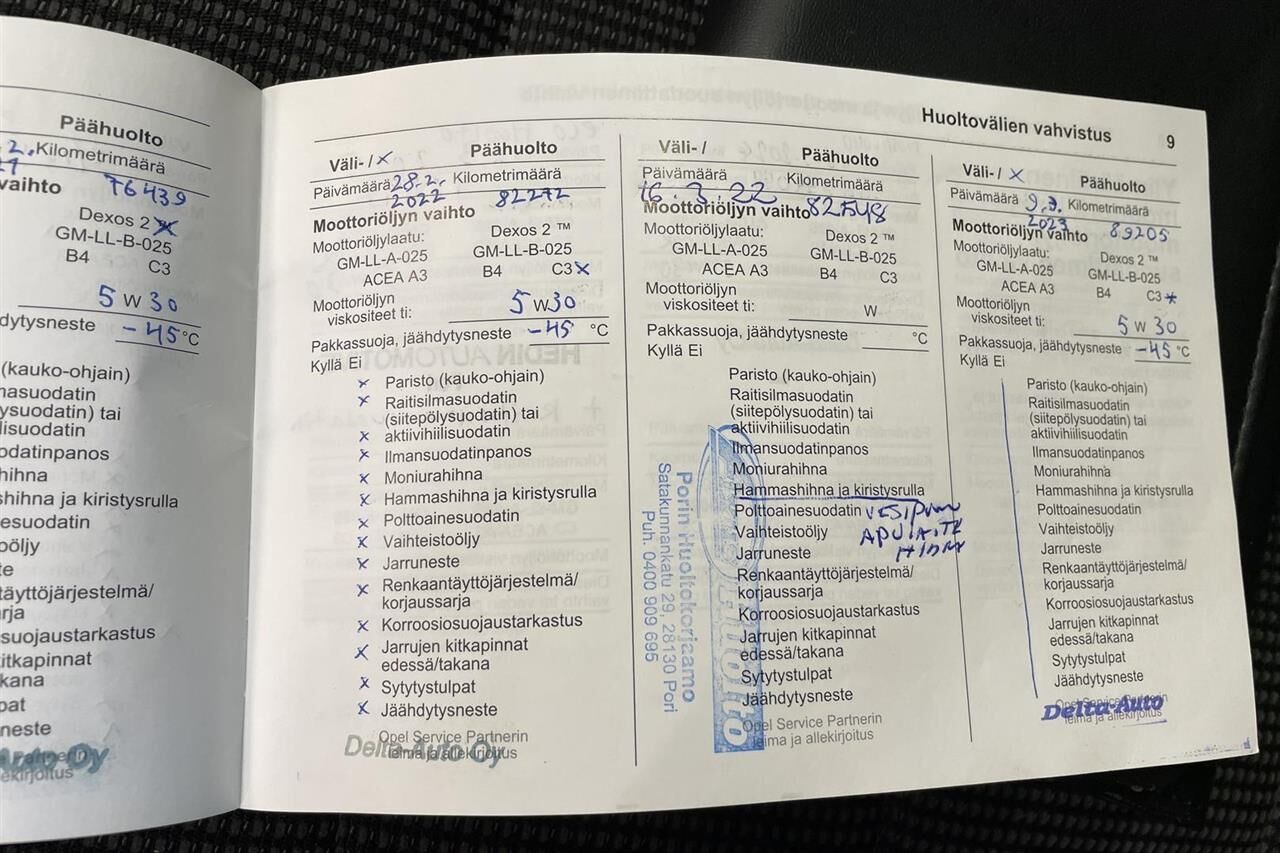 Päähuolto
2. Kilometrimäärä
76439
vaihto
Dexos 2 X
GM-LL-B-025
B4 C3
5 W 30
dytysneste -45 °C
(kauko-ohjain)
masuodatin
lysuodatin) tai
lisuodatin
odatinpanos
hihna
shihna ja kiristysrulla
nesuodatin
oöljy
te
täyttöjärjestelmä/
rja
suojaustarkastus
itkapinnat
kana
pat
neste
Oy
Partnerin
ekirjoitus
Huoltovälien vahvistus 9
Väli- / X Päähuolto
Päivämäärä 28.2. Kilometrimäärä
2022 82272
Moottoriöljyn vaihto
Moottoriöljylaatu: Dexos 2 ™
GM-LL-A-025 GM-LL-B-025
ACEA A3 B4 C3 X
Moottoriöljyn
viskositeet ti: 5 W 30
Pakkassuoja, jäähdytysneste -45 °C
Kyllä Ei
X Paristo (kauko-ohjain)
X Raitisilmasuodatin
(siitepölysuodatin) tai
X aktiivihiilisuodatin
X Ilmansuodatinpanos
X Moniurahihna
X Hammashihna ja kiristysrulla
X Polttoainesuodatin
X Vaihteistoöljy
X Jarruneste
X Renkaantäyttöjärjestelmä/
korjaussarja
X Korroosiosuojaustarkastus
X Jarrujen kitkapinnat
edessä/takana
X Sytytystulpat
X Jäähdytysneste
Opel Service Partnerin
leima ja allekirjoitus
Delta-Auto Oy
Väli- / Päähuolto
Päivämäärä Kilometrimäärä
16.3.22 82548
Moottoriöljyn vaihto
Moottoriöljylaatu: Dexos 2 ™
GM-LL-A-025 GM-LL-B-025
ACEA A3 B4 C3
Moottoriöljyn
viskositeet ti: W
Pakkassuoja, jäähdytysneste °C
Kyllä Ei
Paristo (kauko-ohjain)
Raitisilmasuodatin
(siitepölysuodatin) tai
aktiivihiilisuodatin
Ilmansuodatinpanos
Moniurahihna
Hammashihna ja kiristysrulla
Polttoainesuodatin
Vaihteistoöljy
Jarruneste
Renkaantäyttöjärjestelmä/
korjaussarja
Korroosiosuojaustarkastus
Jarrujen kitkapinnat
edessä/takana
Sytytystulpat
Jäähdytysneste
Opel Service Partnerin
leima ja allekirjoitus
Porin Huoltokorjaamo
Satakunnankatu 29, 28130 Pori
Puh. 0400 909 695
Väli- / X Päähuolto
Päivämäärä 9.3. Kilometrimäärä
2023 89205
Moottoriöljyn vaihto
Moottoriöljylaatu: Dexos 2 ™
GM-LL-A-025 GM-LL-B-025
ACEA A3 B4 C3 X
Moottoriöljyn
viskositeet ti: 5 W 30
Pakkassuoja, jäähdytysneste -45 °C
Kyllä Ei
Paristo (kauko-ohjain)
Raitisilmasuodatin
(siitepölysuodatin) tai
aktiivihiilisuodatin
Ilmansuodatinpanos
Moniurahihna
Hammashihna ja kiristysrulla
Polttoainesuodatin
Vaihteistoöljy
Jarruneste
Renkaantäyttöjärjestelmä/
korjaussarja
Korroosiosuojaustarkastus
Jarrujen kitkapinnat
edessä/takana
Sytytystulpat
Jäähdytysneste
Opel Service Partnerin
leima ja allekirjoitus
Delta-Auto